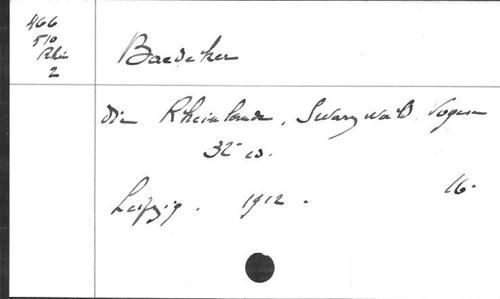 466
510
Rhi
2
Baedeker
Die Rheinlande, Swarzwald Vogesen
32e ed.
Leipzig. 1912. 16.